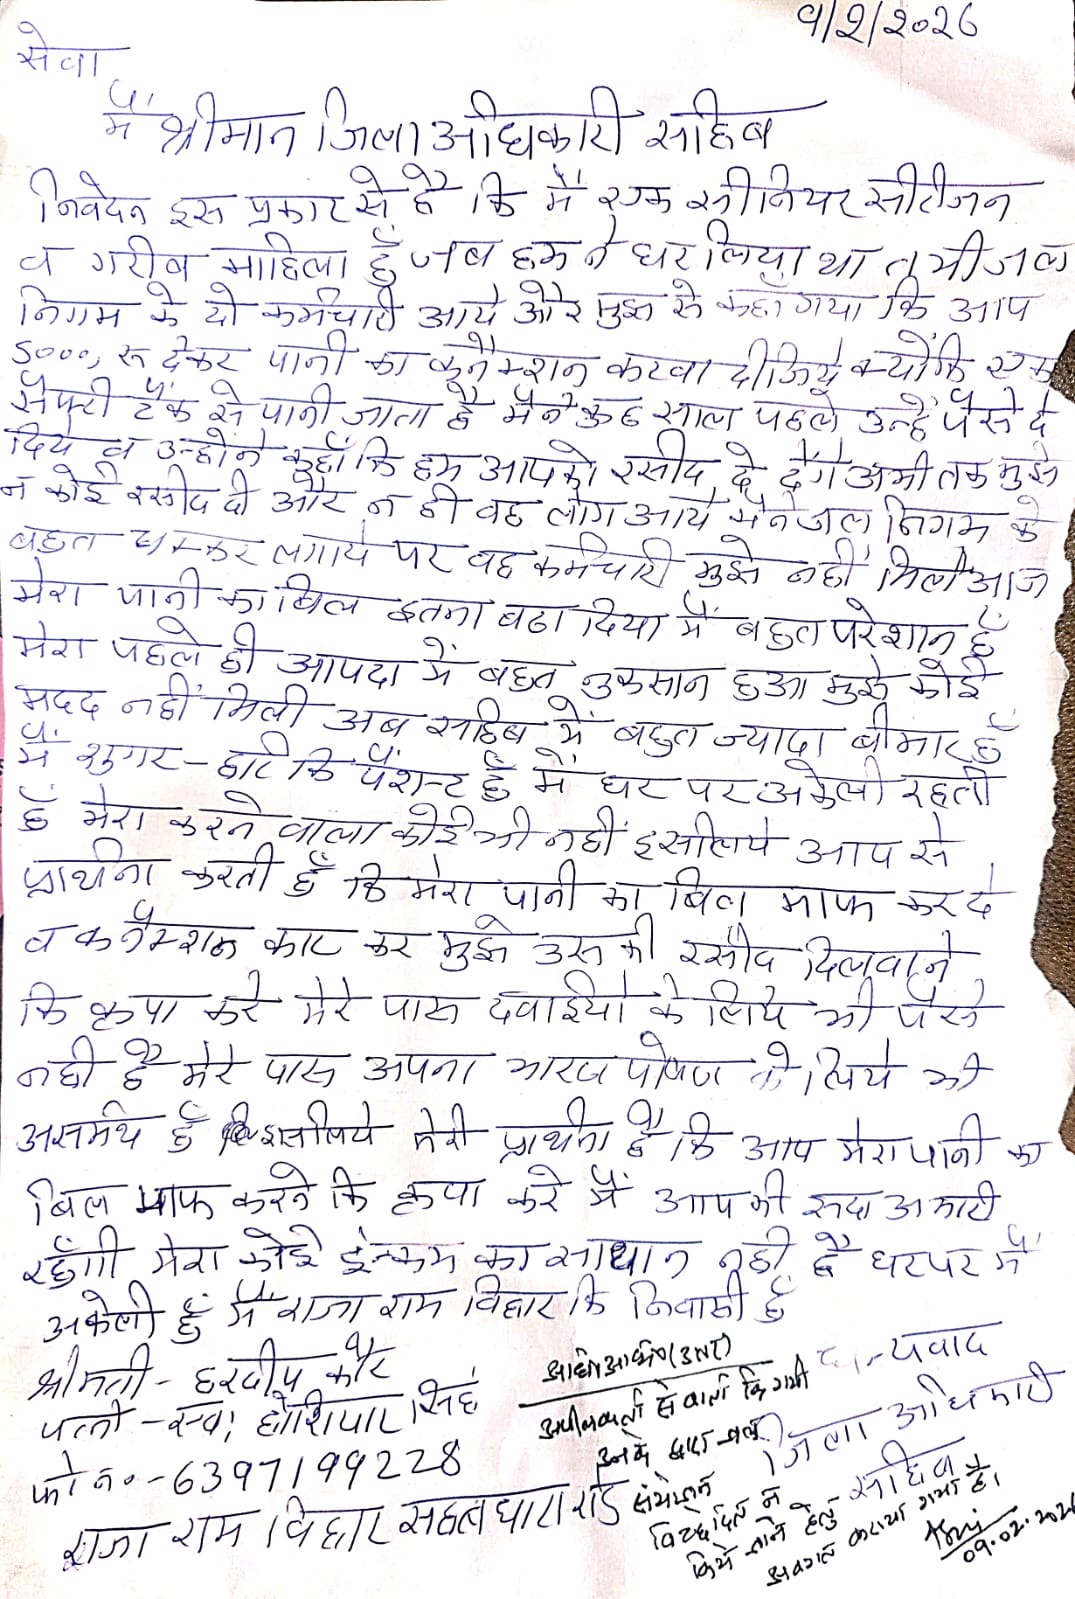 9/2/2026
सेवा
में श्रीमान जिला अधिकारी साहिब
निवेदन इस प्रकार से है कि मैं एक सीनियर सीटीजन
व गरीब माहिला हूँ जब हम ने घर लिया था तभी जल
निगम के दो कर्मचारी आये और मुझ से कहाँ गया कि आप
5000, रू देकर पानी का कनैक्शन करवा दीजिये क्योंकि एक
सेफ्टी टैंक से पानी जाता है मैंने कुछ साल पहले उन्हें पैसे दे
दिये व उन्होंने कहाँ कि हम आपको रसीद दे देंगे अभी तक मुझे
न कोई रसीद दी और न ही वह लोग आये मैंने जल निगम के
बहुत चक्कर लगाये पर वह कर्मचारी मुझे नहीं मिले आज
मेरा पानी का बिल इतना बढा दिया मैं बहुत परेशान हूँ
मेरा पहले ही आपदा में बहुत नुकसान हुआ मुझे कोई
मदद नहीं मिली अब साहिब में बहुत ज्यादा बीमार हूँ
मैं शुगर - हार्ट कि पैशन्ट हूँ में घर पर अकेली रहती
हूँ मेरा करने वाला कोई भी नहीं इसीलिये आप से
प्रार्थना करती हूँ कि मेरा पानी का बिल माफ कर दे
व कनैक्शन काट कर मुझे उस की रसीद दिलवाने
कि कृपा करे मेरे पास दवाईयो के लिये भी पैसे
नही है मेरे पास अपना भारण पोषण के लिये भी
असमर्थ हूँ इसीलिये मेरी प्रार्थना है कि आप मेरा पानी का
बिल माफ करने कि कृपा करे मैं आप की सदा अभारी
रहूँगी मेरा कोई इन्कम का साधान नही है घर पर मैं
अकेली हूं मैं राजा राम विहार कि निवासी हूँ
श्रीमती - हरदीप कौर
पत्नी - स्व; होशियार सिंह
फो न० - 6397199228
राजा राम विहार सहस्त्रधारा रोड
धन्यवाद
जिला अधिकारी
साहिब
अधि० अभि० (उत्तर)
अपीलकर्ता से वार्ता कि गयी
उनके द्वारा जल
संयोजन
विच्छेदित न
किये जाने हेतु
अवगत कराया गया है।
09.02.2026